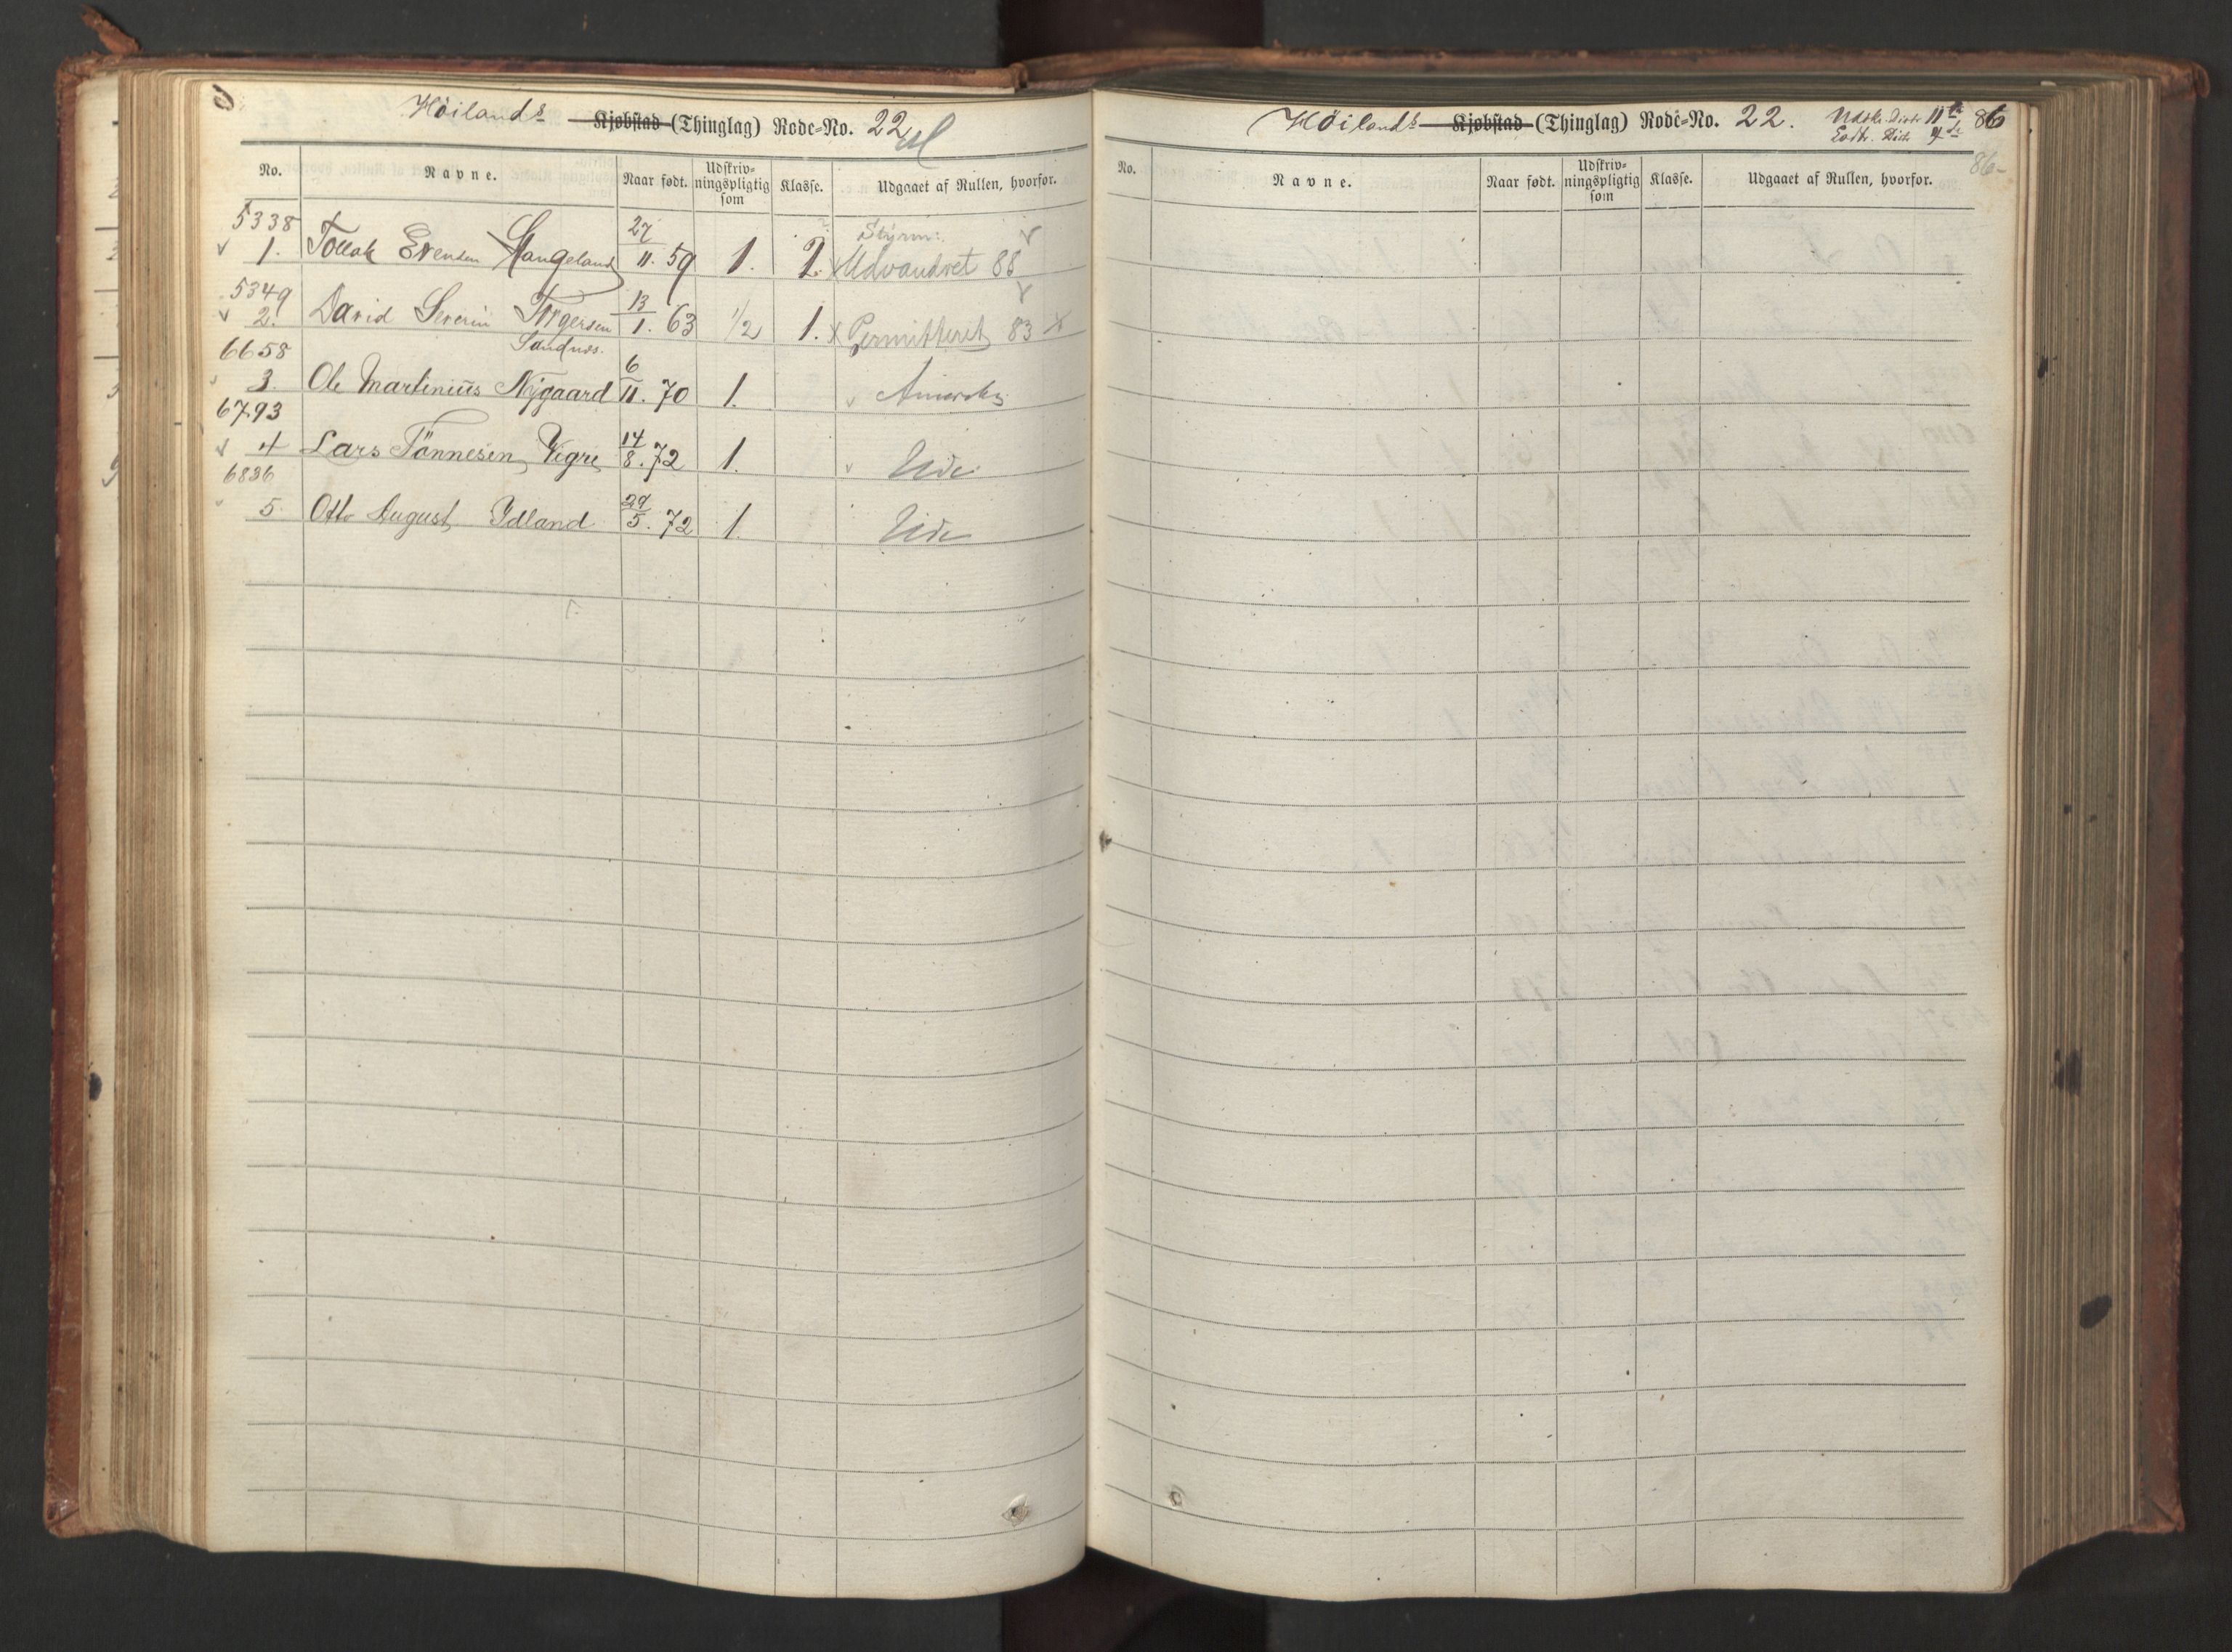 Höilands Kjøbstad (Thinglag) Rode-No. 22
No. Navne. Naar født. Udskriv-ningspligtig som Klasse. Udgaaet af Rullen, hvorfor.
5338 27 Styrm:
1. Tollak Evensen Stangeland 11. 59 1. 2. Udvandret 88
5349 13
2. David Severin Torgersen 1. 63 1/2 1. x Permitteret 83 x
6658 Sandnes. 6
3. Ole Martinius Nÿgaard 11. 70 1. Amerika
6793 14
4 Lars Tönnesen Vigre 8. 72 1. Ude
6836 29
5. Otto August Idland 5. 72 1. Ude
Höilands Kjøbstad (Thinglag) Rode-No. 22. Udskr. Distr. 11te 86
86
No. Navne. Naar født. Udskriv-ningspligtig som Klasse. Udgaaet af Rullen, hvorfor.